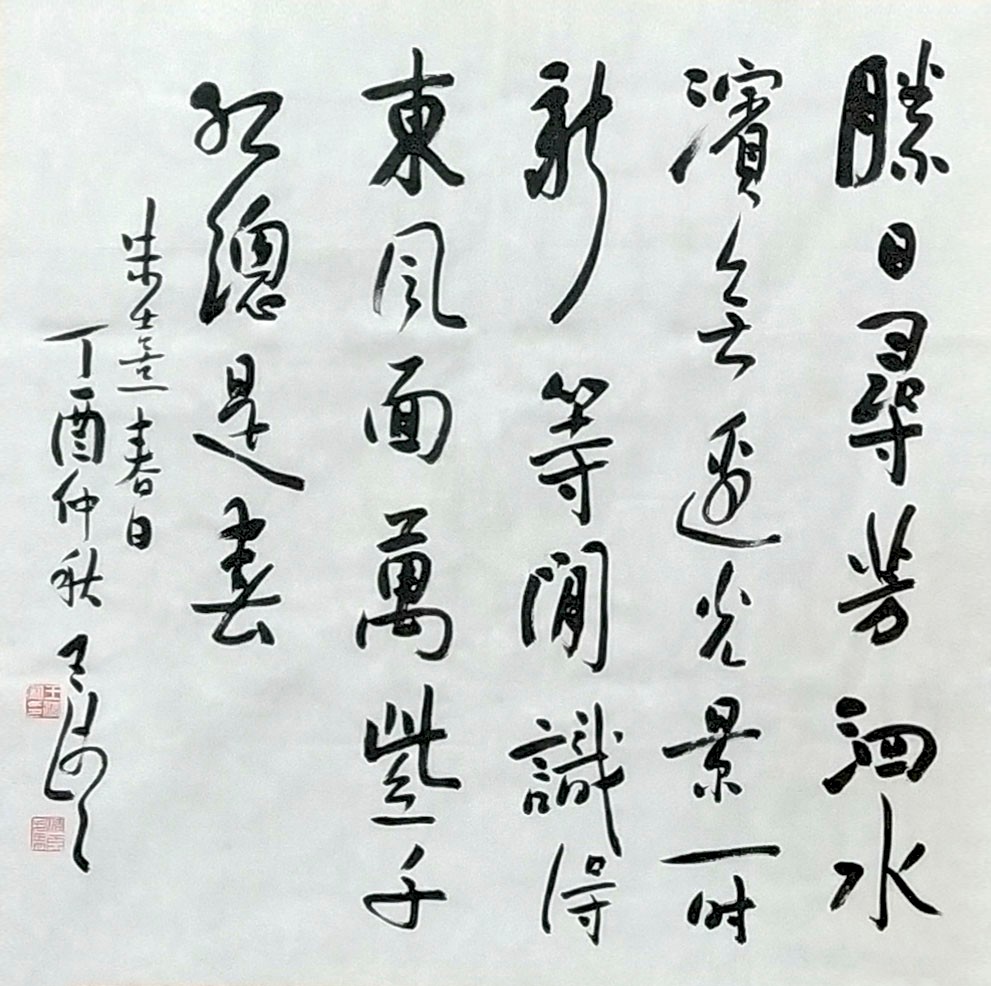 勝日尋芳泗水
濱無邊光景一时
新等閒識得
東風面萬些千
紅總是春
朱熹春日
丁酉仲秋 王